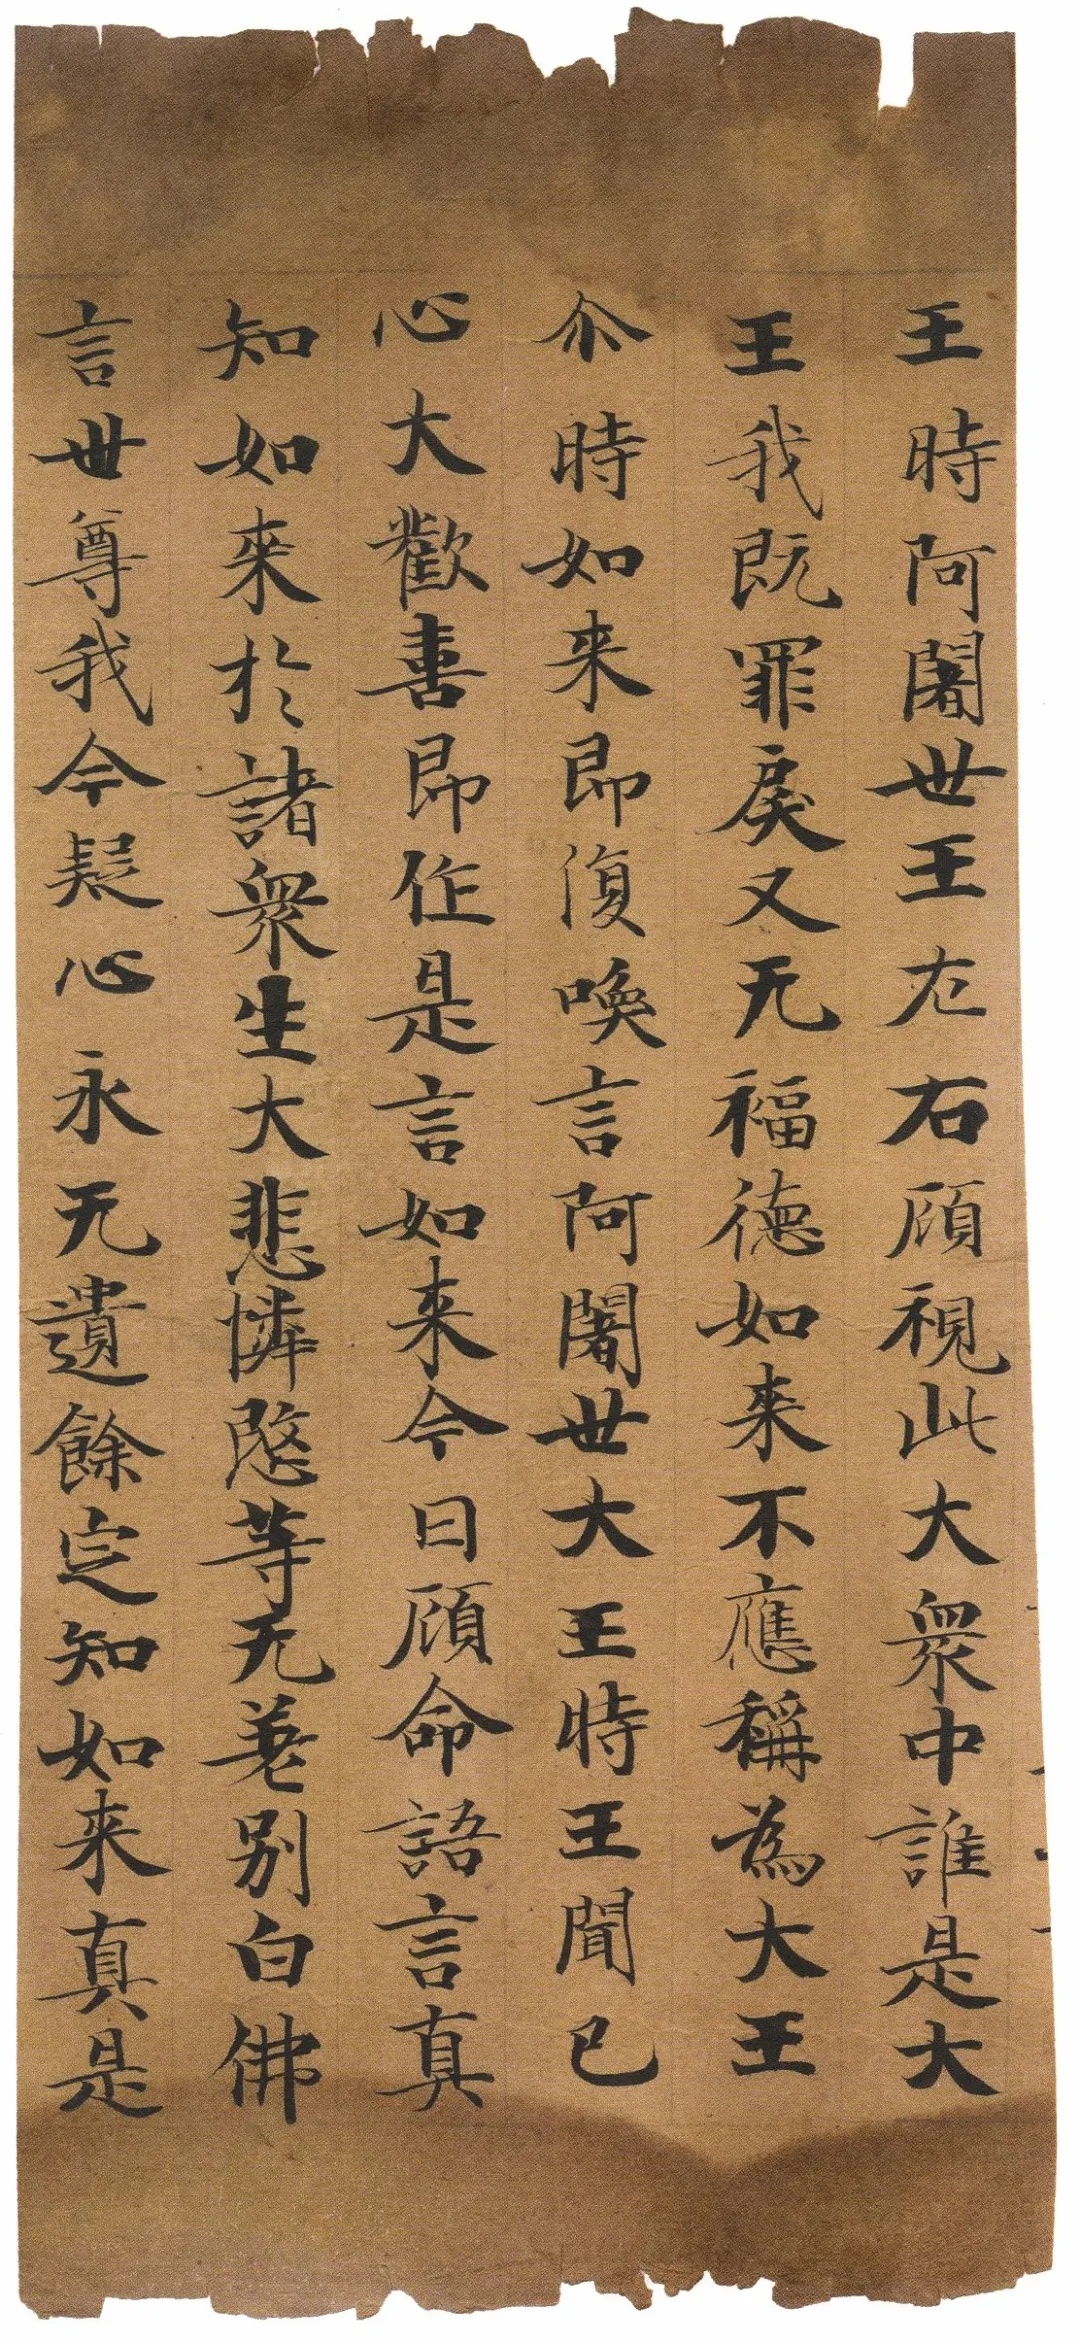 王時阿闍世王左右顧視此大衆中誰是大
王我既罪戾又无福德如来不應稱為大王
尒時如来即復喚言阿闍世大王時王聞已
心大歡喜即作是言如来今日顧命語言真
知如来於諸衆生大悲憐愍等无差別白佛
言世尊我今疑心永无遺餘定知如来真是